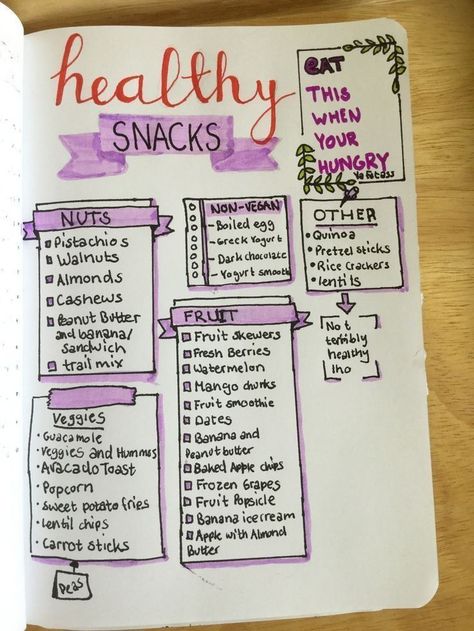 healthy
SNACKS
EAT
THIS
WHEN
YOUR
HUNGRY
Ya fatass
NUTS
Pistachios
Walnuts
Almonds
Cashews
Peanut Butter
and banana/
sandwich
trail mix
NON-VEGAN
- Boiled egg
- Greek Yogurt
- Dark chocolate
- Yogurt smooth
OTHER
• Quinoa
• Pretzel sticks
• Rice Crackers
• lentils
Not
terribly
healthy
tho
FRUIT
Fruit skewers
Fresh Berries
Watermelon
Mango chunks
Fruit smoothie
Dates
Banana and
Peanut butter
Baked Apple chips
Frozen Grapes
Fruit Popsicle
Banana icecream
Apple with Almond
Butter
Veggies
• Guacamole
• Veggies and Hummos
• Avacado Toast
• Popcorn
• Sweet potato fries
• Lentil chips
• Carrot sticks
Peas